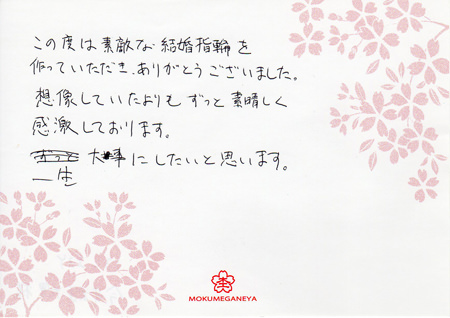 この度は素敵な結婚指輪を
作っていただき、ありがとうございました。
想像していたよりもずっと素晴しく
感激しております。
ずっと 大事にしたいと思います。
一生
杢
MOKUMEGANEYA